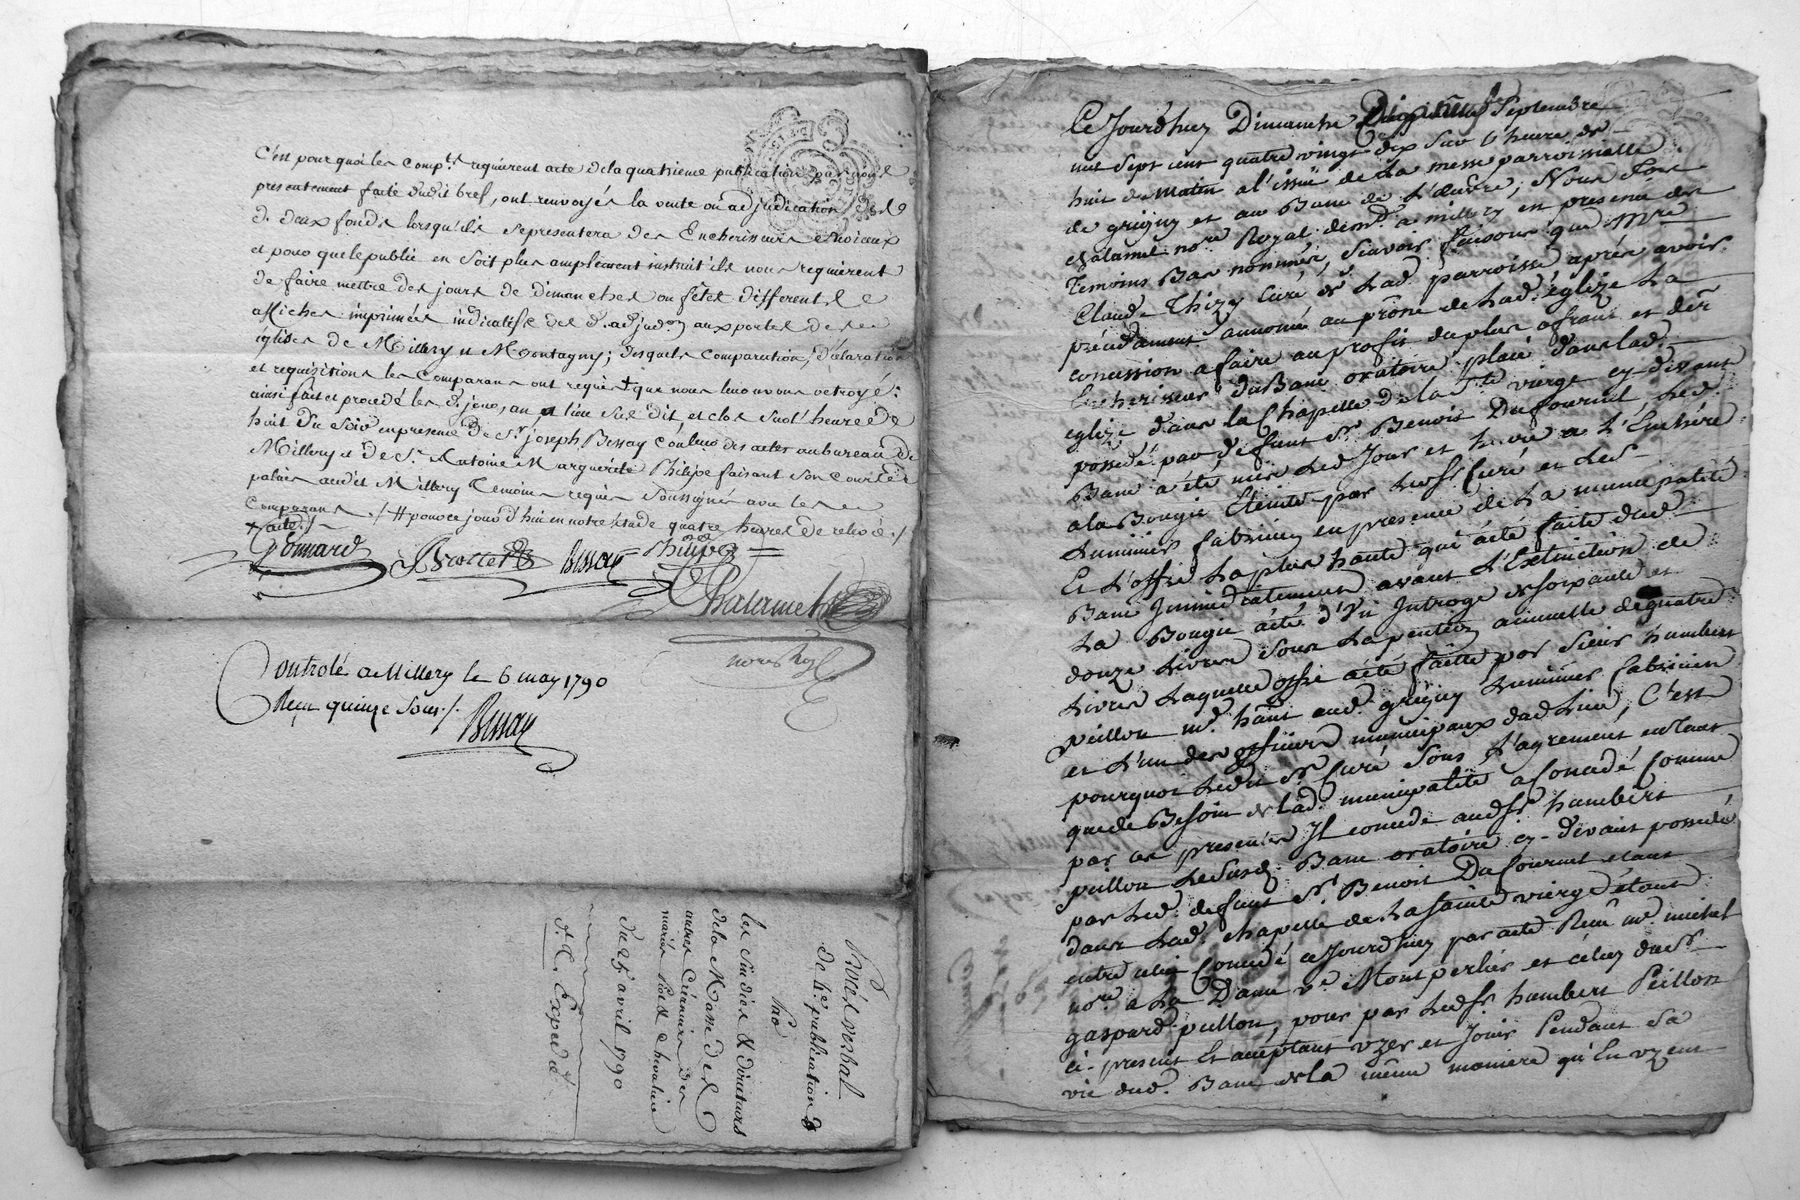 C'est pour quoi les comp.ts requierent acte de la quatrieme publication par nous
presentement faite dudit bref, ont renvoyés la vente ou adjudication des
d. deux fonds lorsqu'il se presentera des Encherisseurs
et pour que le public en soit plus amplement instruit ils nous requierent
de faire mettre des jours de dimanches ou fêtes differentes
affiches imprimées indicatifs des d. adjud.on aux portes des
églises de Millery et Montagny; desquels comparution, déclaration
et requisitions les comparans ont requis + que nous leur avons octroyé:
ainsi fait et procedé les d. jour, an et lieu sus dit et clos sur l'heure de
huit du soir en presence de S.r joseph Bessay Cônleur des actes au bureau de
Millery et de S.r Antoine Marguerite Philipe faisant son Cour les
palais audit Millery temoins requis soussignés avec les
Comparans ./. # pour ce jour d'hui en notre étude quatre heures de relevé ./.
+ acte ./.
Gonnard Bessay Philipe
Chalamel
nore Royl
Controlé a Millery le 6 may 1790
Reçu quinze sous ./.
Bessay
Procés verbal
de 4e publication
Pour
les sindics & directeurs
de la Masse des
autres Créanciers des
mariés Pol & Chevalier
du 25 avril 1790
d. C. Exped.ée
Ce Jourd'huy Dimanche Dix neuf Septembre
mil sept cent quatre vingt dix sur l'heure de
huit du matin a l'issüe de La messe parroissialle
de grigny et au Banc de L'œuvre; Nous
Chalamel no.re Royal demt. a millery en presence des
Temoins Bas nommés, sçavoir faisons que Mre
Claude Thizy Curé de Lad. parroisse après avoir
précédament annoncé au prône de Lad. églize La
concession a faire au profit du plus offrant et der.
Encherisseur du Banc oratoire placé dans lad.
eglize dans la Chapelle de la S.te vierge cy devant
possedé par défunt S.r Benoit Dufournel, Led.
Banc a été mis Led. Jour et heure a L'Enchére
a la Bougie Eteinte par Led. S.r Curé et Led.
Luminier fabricien en presence de La municipalité
Et L'offre La plus haute qui a été faite dud.
Banc Immediatement avant L'Extinction de
La Bougie a été d'un Introge de soixante et
douze Livres sous La pention annuelle de quatre
Livres Laquelle offre a été faitte par Sieur humbert
peillon m.d habit. aud. grigny Luminier fabricien
et L'un des officiers municipaux dud. Lieu, C'est
pourquoi Ledit S.r Curé sous L'agrement en tant
que de Besoin de lad. municipalité a Concedé comme
par ces presentes Il concede aud. S.r humbert
peillon Le susd. Banc oratoire cy-devant possedé
par Led. defunt S.r Benoit Dufournel etant
dans Lad. chapelle de La sainte vierge étant
entre celui Concedé ce Jourd'huy par acte Reçu me michel
no.re a La Dame v.e Montperlier et celuy du S.r
gaspard peillon, pour par Led. S.r humbert Peillon
ci-present Et acceptant uzer et Jouir Pendant sa
vie dud. Banc de la même maniere qu'En uzent